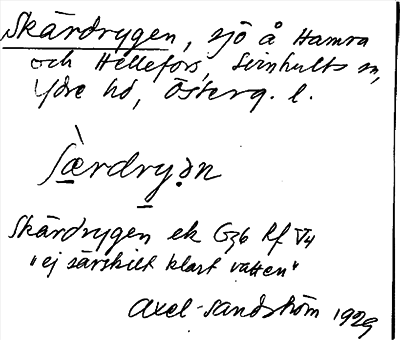 Skärdrygen, sjö å Hamra
och Hellefors, Svinhults sn,
Ydre hd, Österg. l.
Skärdrygen ek G36 Rf V4
"ej särskilt klart vatten"
Axel Sandström 1929